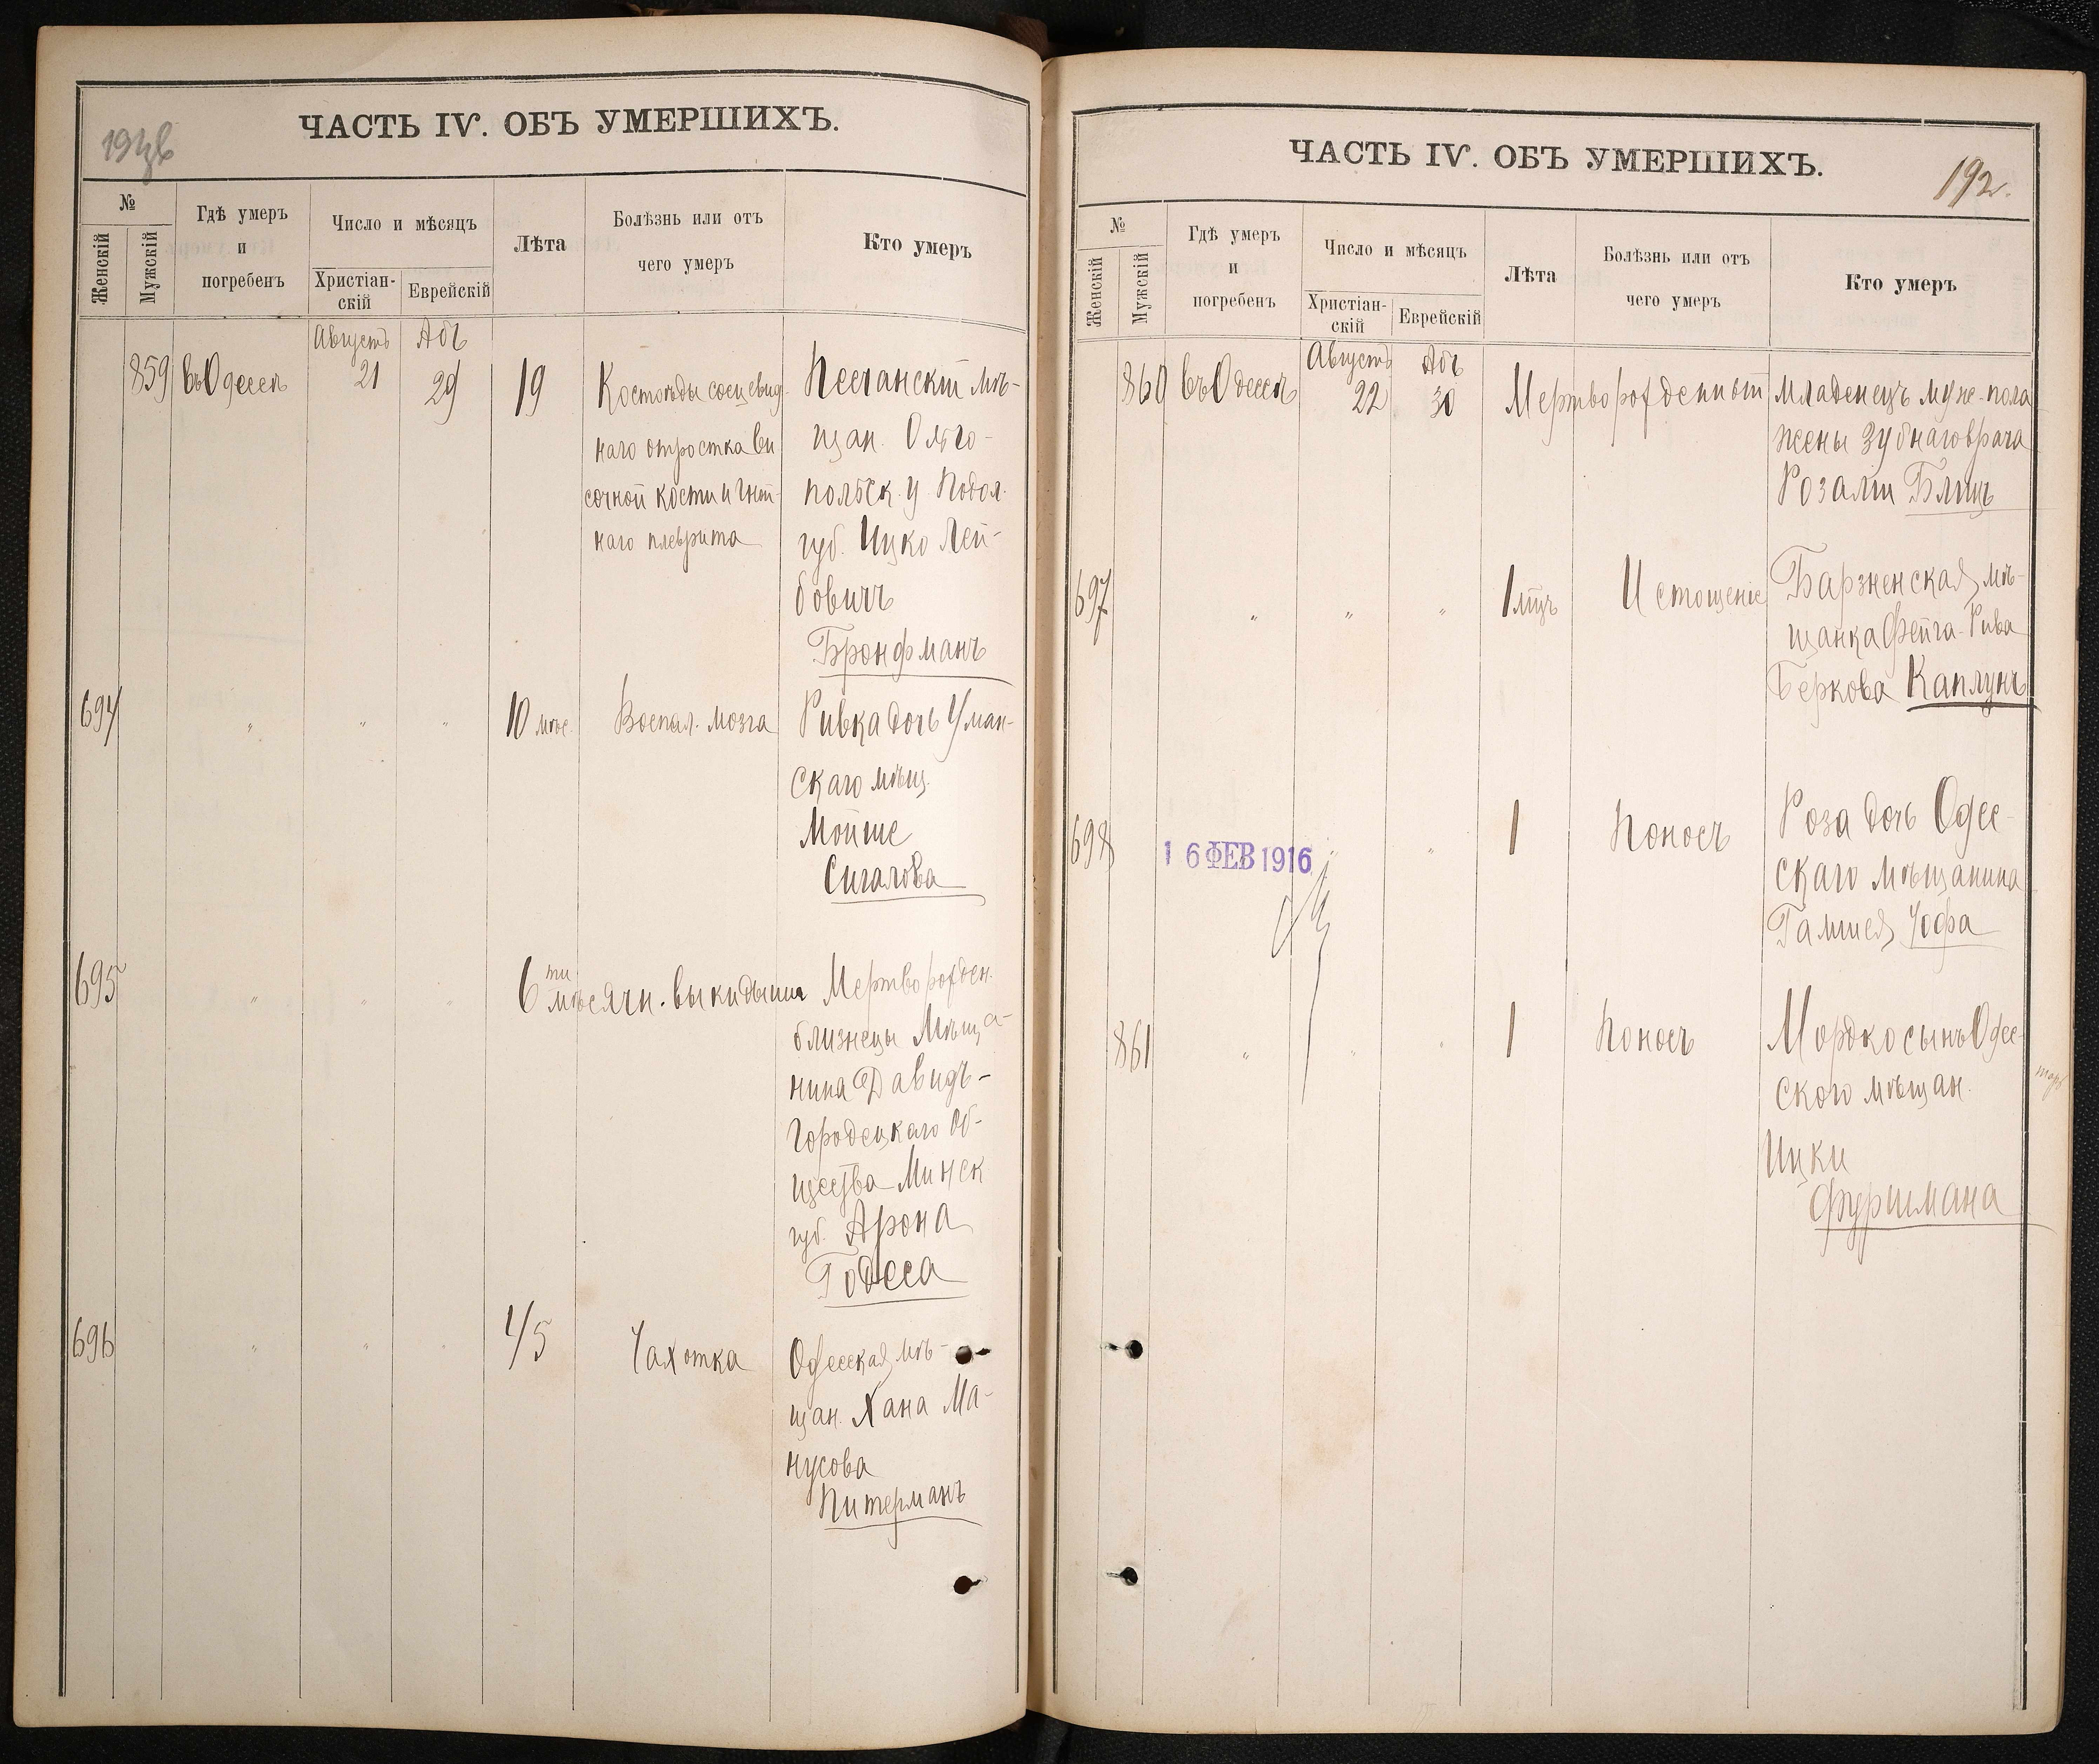 ЧАСТЬ IV. ОБЪ УМЕРШИХЪ.
№
Женскій
Мужскій
Гдѣ умеръ
и
погребенъ
Число и мѣсяцъ
Христіан-
скій
Еврейскій
Лѣта
Болѣзнь или отъ
чего умеръ
Кто умеръ
Августъ Абъ
859 въ Одессѣ 21 29 19
Костоѣды сосцевид-
наго отростка ви
сочной кости и гной-
наго плеврита
Песчанскій мѣ-
щан. Ольго-
польск. у. Подол.
губ. Ицко Лей-
бовичъ
Бронфманъ
694 " " " 10 мѣс. Воспал. мозга
Ривка дочь Уман-
скаго мѣщ.
Мойше
Сигалова
695 " " " 6 ти мѣсячн. выкидыши
Мертворожден.
близнецы Мѣща-
нина Давидъ-
Городецкаго об-
щества Минск
губ. Арона
Годеса
696 " " " 45 Чахотка
Одесская мѣ-
щан. Хана Ма-
нусова
Питерманъ
ЧАСТЬ IV. ОБЪ УМЕРШИХЪ.
192.
№
Женскій
Мужскій
Гдѣ умеръ
и
погребенъ
Число и мѣсяцъ
Христіан-
скій
Еврейскій
Лѣта
Болѣзнь или отъ
чего умеръ
Кто умеръ
Августъ Абъ
860 въ Одессѣ 22 30 Мертворожденный
Младенецъ муж. пола
жены зубнаго врача
Розаліи Блицъ
697 " " " 1 мцъ Истощеніе
Барзненская мѣ-
щанка Фейга-Рива
Беркова Каплунъ
698 16 ФЕВ 1916 " " 1 Поносъ
Роза дочь Одес-
скаго мѣщанина
Гамшея Іофа
861 " " " 1 Поносъ
Мордко сынъ Одес-
ского мѣщан.
Ицки
Фуршмана